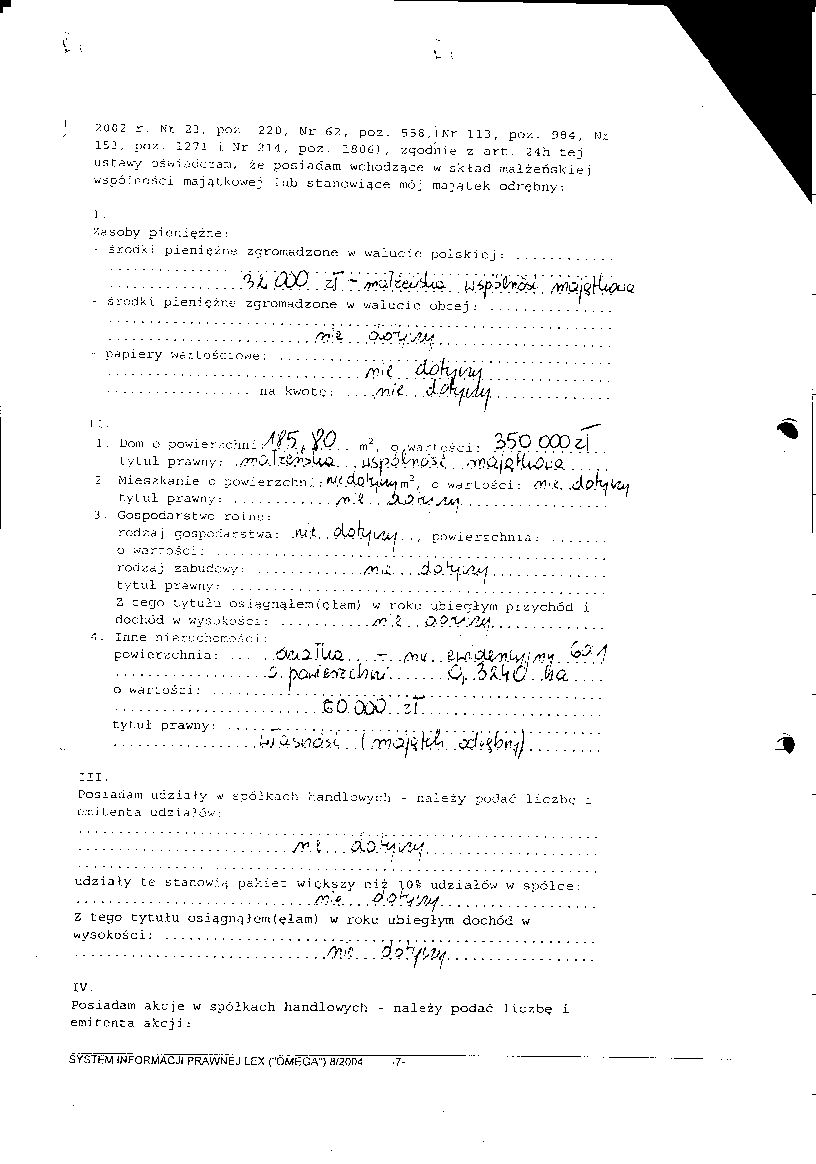 2002 r. Nr 23, poz. 220, Nr 62, poz. 558, Nr 113, poz. 984, Nr
153, poz. 1271 i Nr 214, poz. 1806), zgodnie z art. 24h tej
ustawy oświadczam, że posiadam wchodzące w skład małżeńskiej
wspólności majątkowej lub stanowiące mój majątek odrębny:
I.
Zasoby pieniężne:
- środki pieniężne zgromadzone w walucie polskiej: ............
32 000 zł - małżeńska wspólność majątkowa
- środki pieniężne zgromadzone w walucie obcej: ...............
nie dotyczy
- papiery wartościowe: ........................................
nie dotyczy
.................. na kwotę: ....nie dotyczy
II.
1. Dom o powierzchni: 185,80 m², o wartości: 350 000 zł
tytuł prawny: małżeńska wspólność majątkowa
2. Mieszkanie o powierzchni: nie dotyczy m², o wartości: nie dotyczy
tytuł prawny: ............nie dotyczy
3. Gospodarstwo rolne:
rodzaj gospodarstwa: nie dotyczy, powierzchnia: .......
o wartości: ................................................
rodzaj zabudowy: ............nie dotyczy
tytuł prawny: ..............................................
Z tego tytułu osiągnąłem(ęłam) w roku ubiegłym przychód i
dochód w wysokości: ...........nie dotyczy
4. Inne nieruchomości:
powierzchnia: ..... działka - nr ewidencyjny 601
o powierzchni 0,3240 ha
o wartości: ................................................
60 000 zł
tytuł prawny: ..............................................
własność (majątek odrębny)
III.
Posiadam udziały w spółkach handlowych - należy podać liczbę i
emitenta udziałów:
nie dotyczy
udziały te stanowią pakiet większy niż 10% udziałów w spółce:
nie dotyczy
Z tego tytułu osiągnąłem(ęłam) w roku ubiegłym dochód w
wysokości: ....................................................
nie dotyczy
IV.
Posiadam akcje w spółkach handlowych - należy podać liczbę i
emitenta akcji:
SYSTEM INFORMACJI PRAWNEJ LEX ("OMEGA") 8/2004 -7-